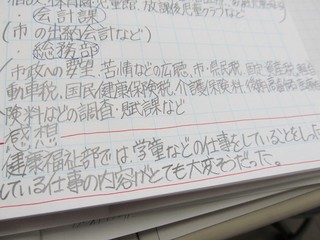 ・会計課
(市の出納会計など)
・総務部
(市政への要望、苦情などの広聴、市・県民税、固定資産税、軽自
動車税、国民健康保険税、介護保険料、
険料などの調査・賦課など
感想
健康福祉部では、学童などの仕事をしていることをしった
している仕事の内容がとても大変そうだった。